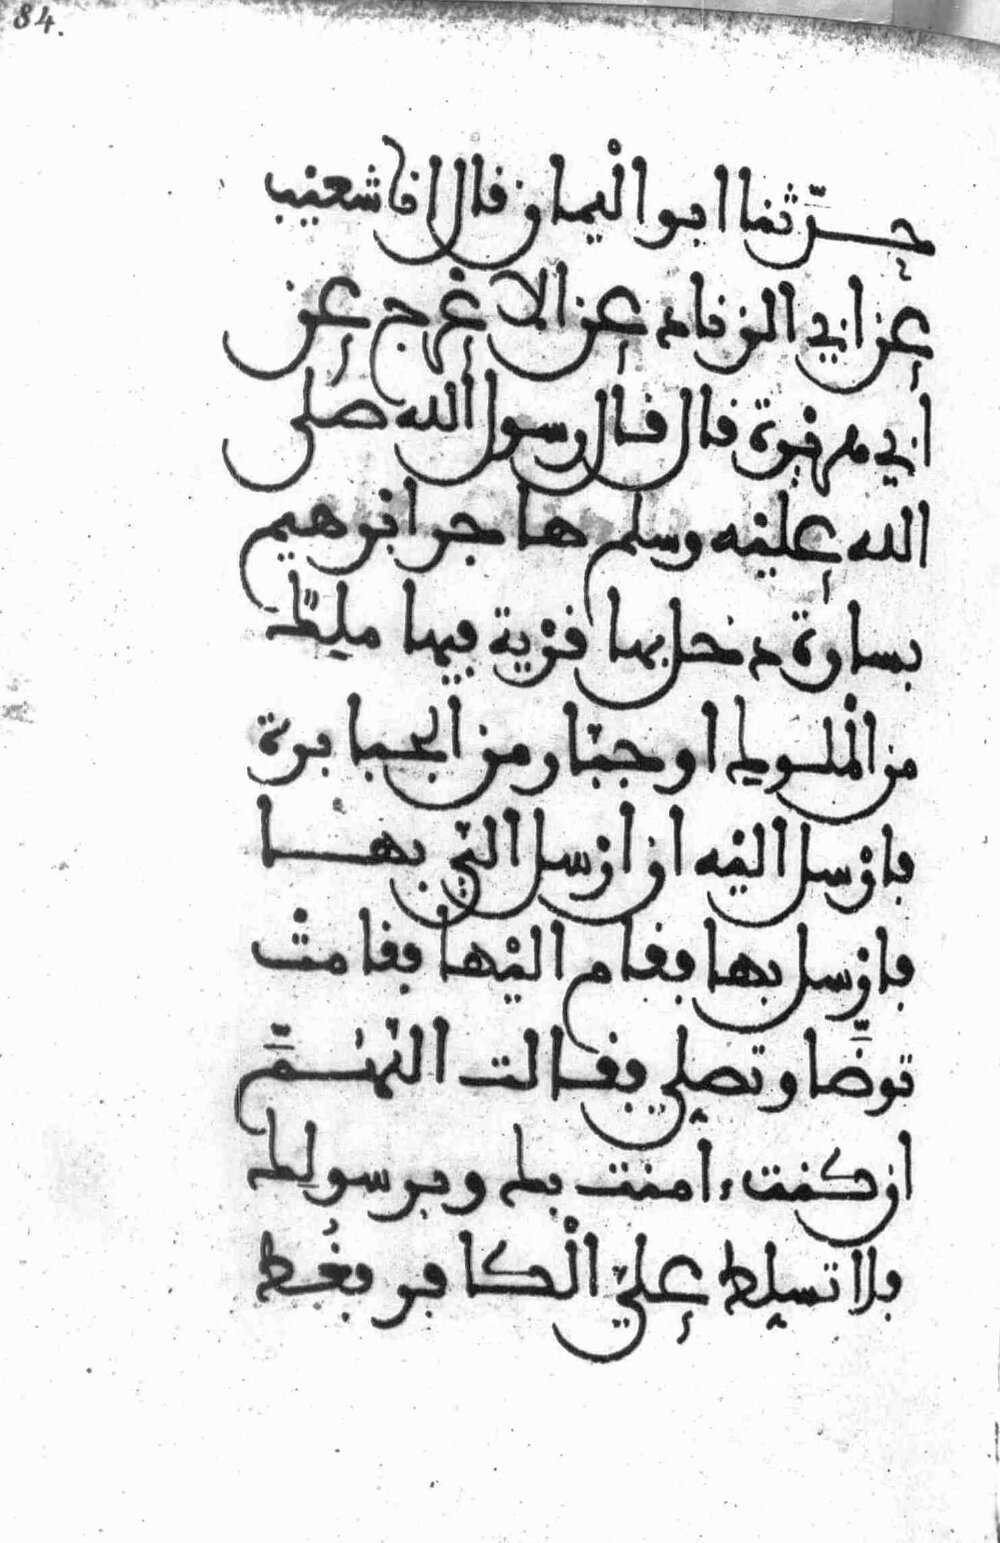 84.
حدّثنا ابو الْيمان قال انا شعيْب
عن ابي الزناد عن الاعْرج عن
ابي هريْرة قال قال رسول الله صلى
الله عليْه وسلم هاجر ابْرهيم
بسارة دخل بها قرْية فيها ملِكٌ
من الْملوك او جبّار من الْجبابرة
فارْسل اليْه ان ارْسل اليّ بها
فارْسل بها فقام اليْها فقامتْ
توضّا وتصلي فقالت اللهُمَّ
ان كنت ءامنت بك وبرسولك
فلا تسلط عليّ الْكافر فغُط